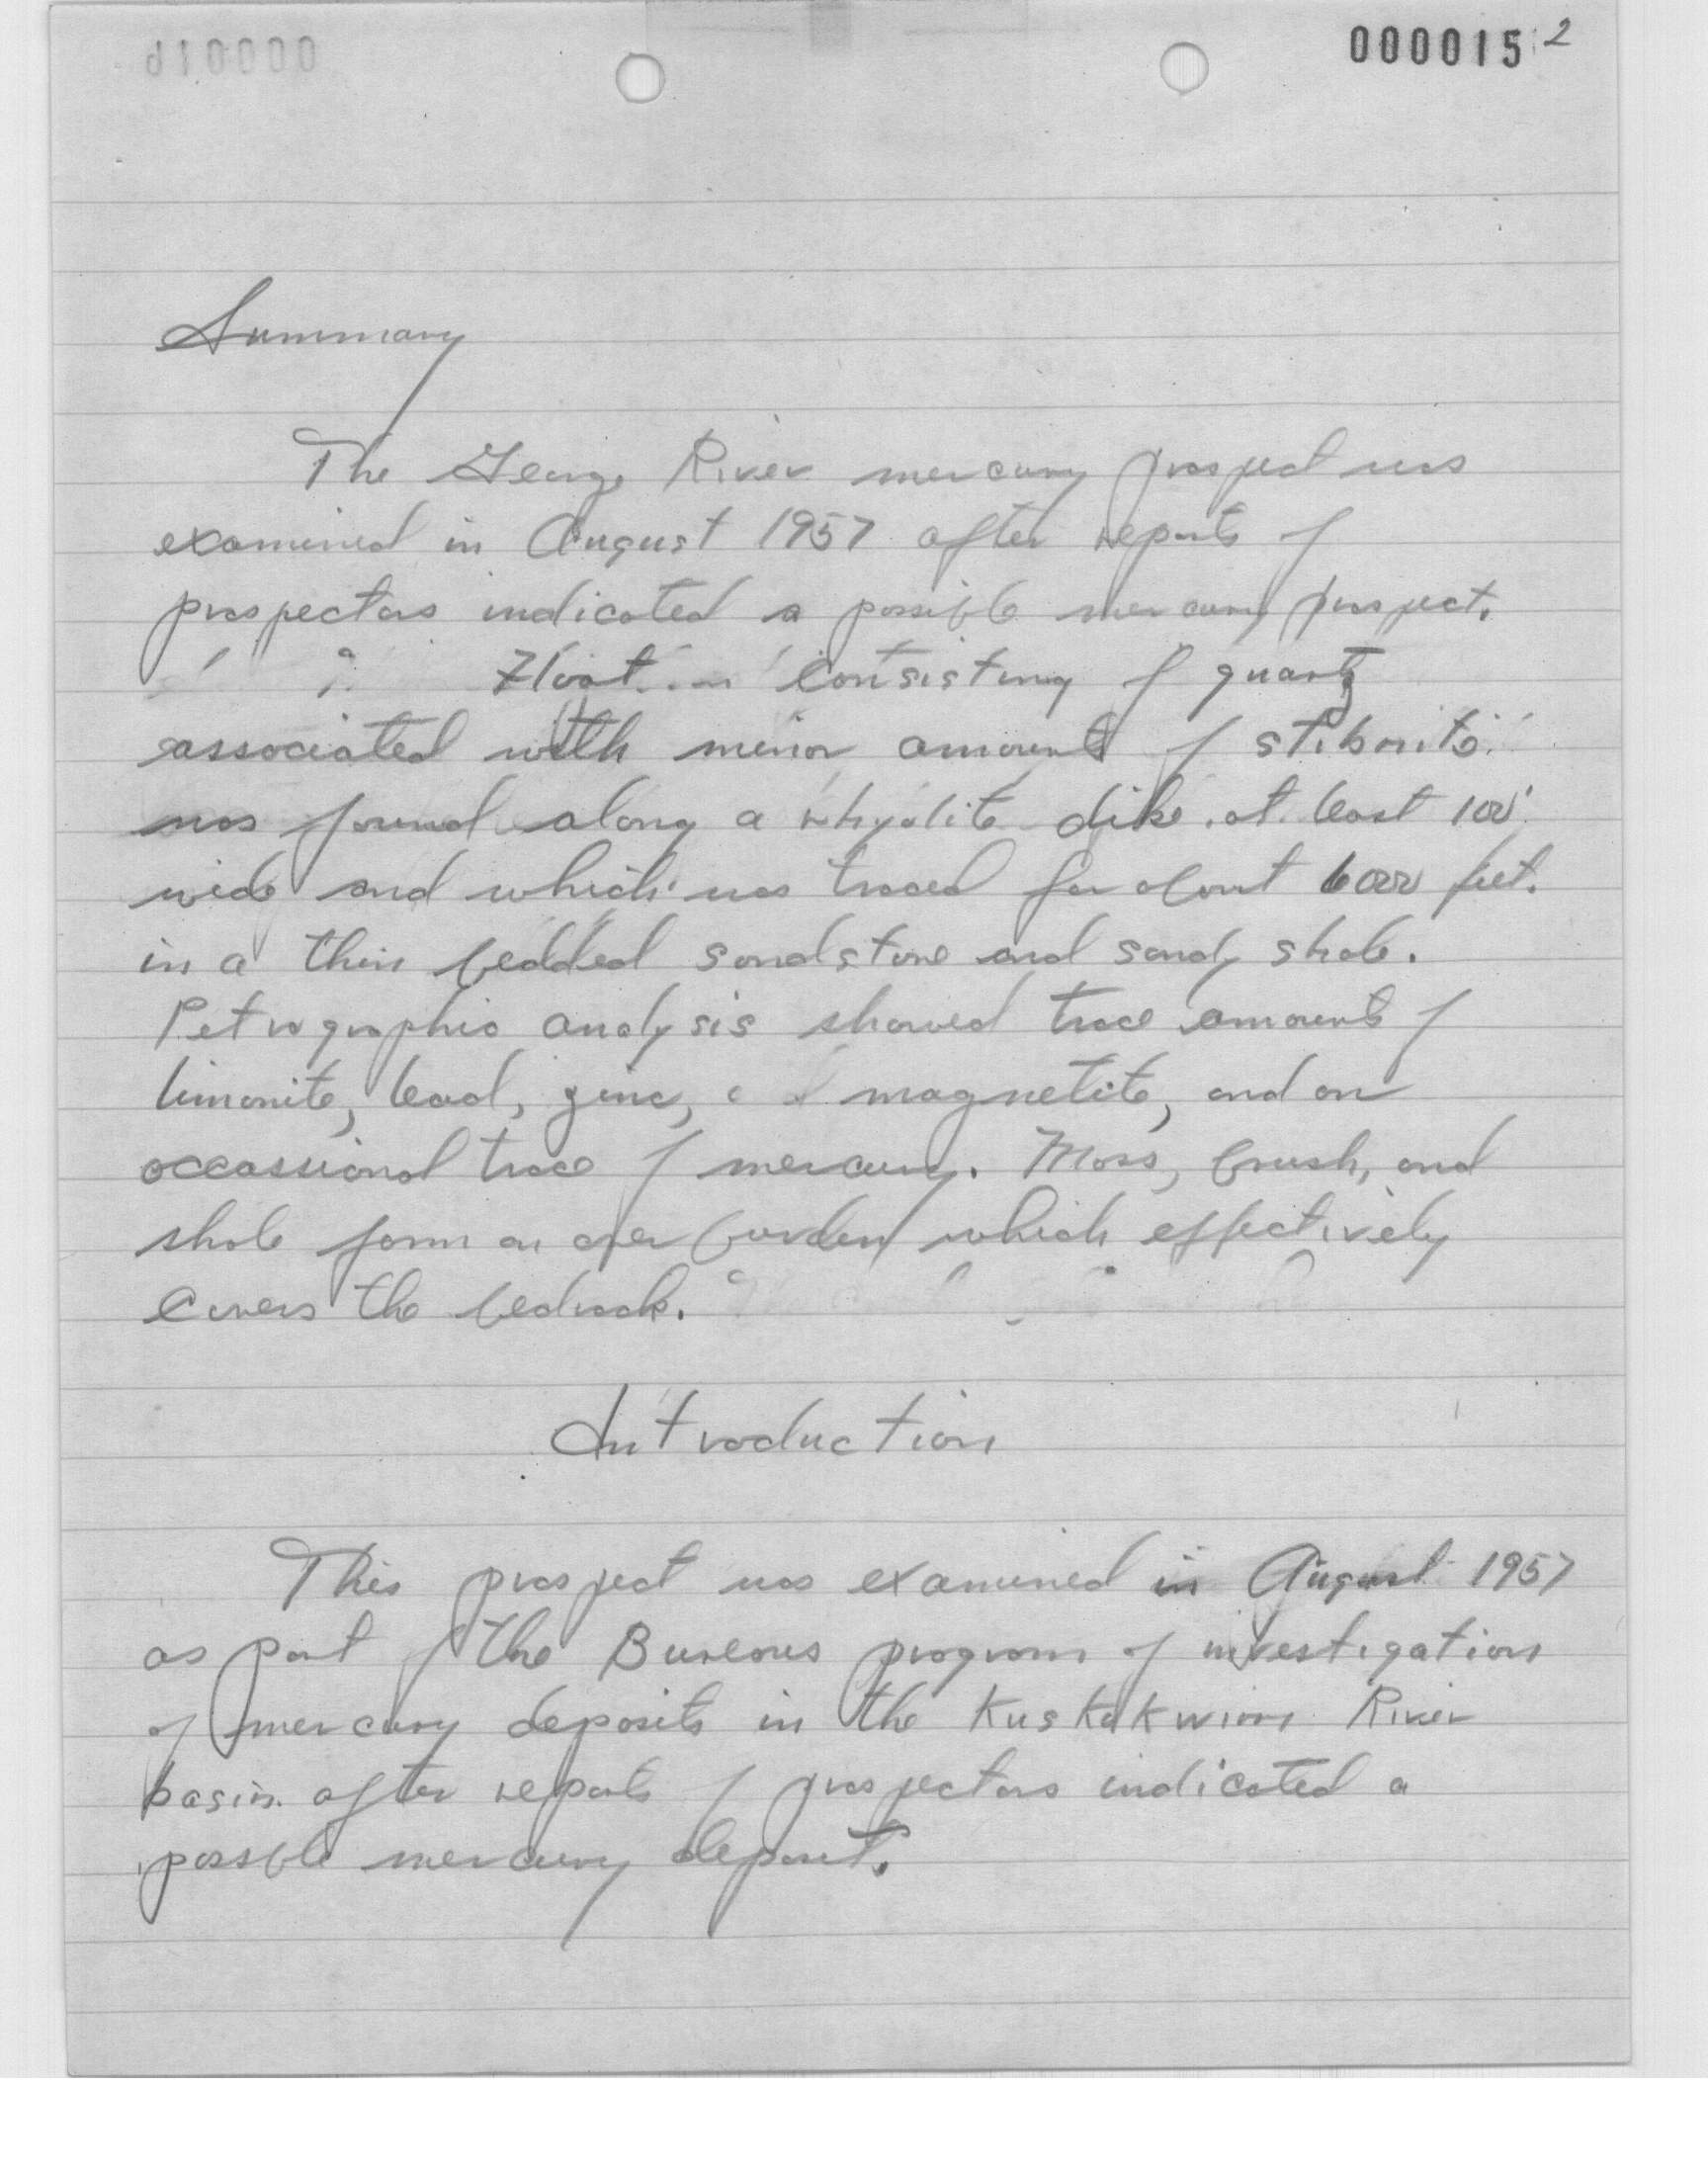 000015 2
Summary
The George River mercury prospect was
examined in August 1957 after reports of
prospectors indicated a possible mercury prospect.
Float consisting of quartz
associated with minor amounts of stibnite
was found along a rhyolite dike at least 100'
wide and which was traced for about 6000 feet.
in a thin bedded sandstone and sandy shale.
Petrographic analysis showed trace amounts of
limonite, lead, zinc, magnetite, and an
occassional trace of mercury. Moss, brush, and
shale form an overburden which effectively
covers the bedrock.
Introduction
This prospect was examined in August 1957
as part of the Bureaus program of investigation
of mercury deposits in the Kuskokwim River
basin after reports of prospectors indicated a
possible mercury deposit.